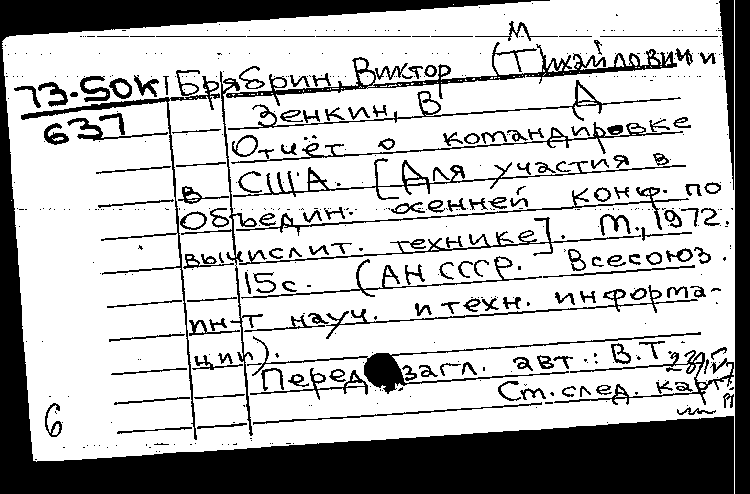 М
73-50К Брябрин, Виктор (Т)ихайлович и
637 Зенкин, В Д
Отчёт о командировке
в США. [Для участия в
Объедин. осенней конф. по
вычислит. технике]. М., 1972.
15с. (АН СССР. Всесоюз.
ин-т науч. и техн. информа-
ции).
Перед загл. авт.: В.Т.
Ст. след. карт
6